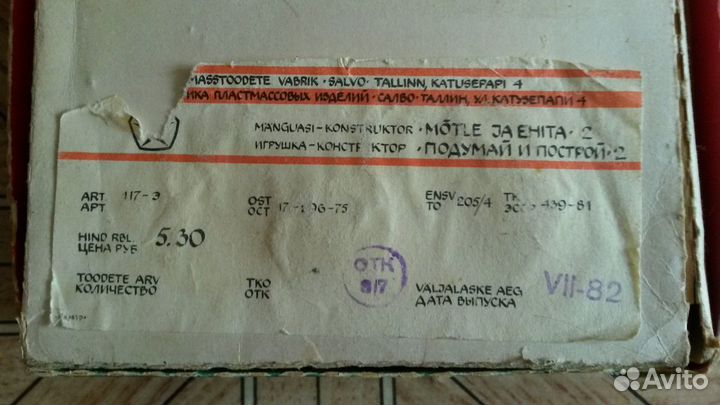 MASSTOODETE VABRIK · SALVO · TALLINN, KATUSEPAPI 4
ПЛАСТМАССОВЫХ ИЗДЕЛИЙ · САЛВО · ТАЛЛИН, УЛ. КАТУЗЕПАПИ 4
MÄNGUASI-KONSTRUKTOR · MÕTLE JA EHITA · 2
ИГРУШКА-КОНСТ КТОР · ПОДУМАЙ И ПОСТРОЙ · 2
ART 117-3 OST 17 -96-75 ENSV 205/4 439-81
АРТ ОСТ ТО
HIND RBL. 5.30
ЦЕНА РУБ
TOODETE ARV TKO ОТК 817 VÄLJALASKE AEG VII-82
КОЛИЧЕСТВО ОТК ДАТА ВЫПУСКА
Avito